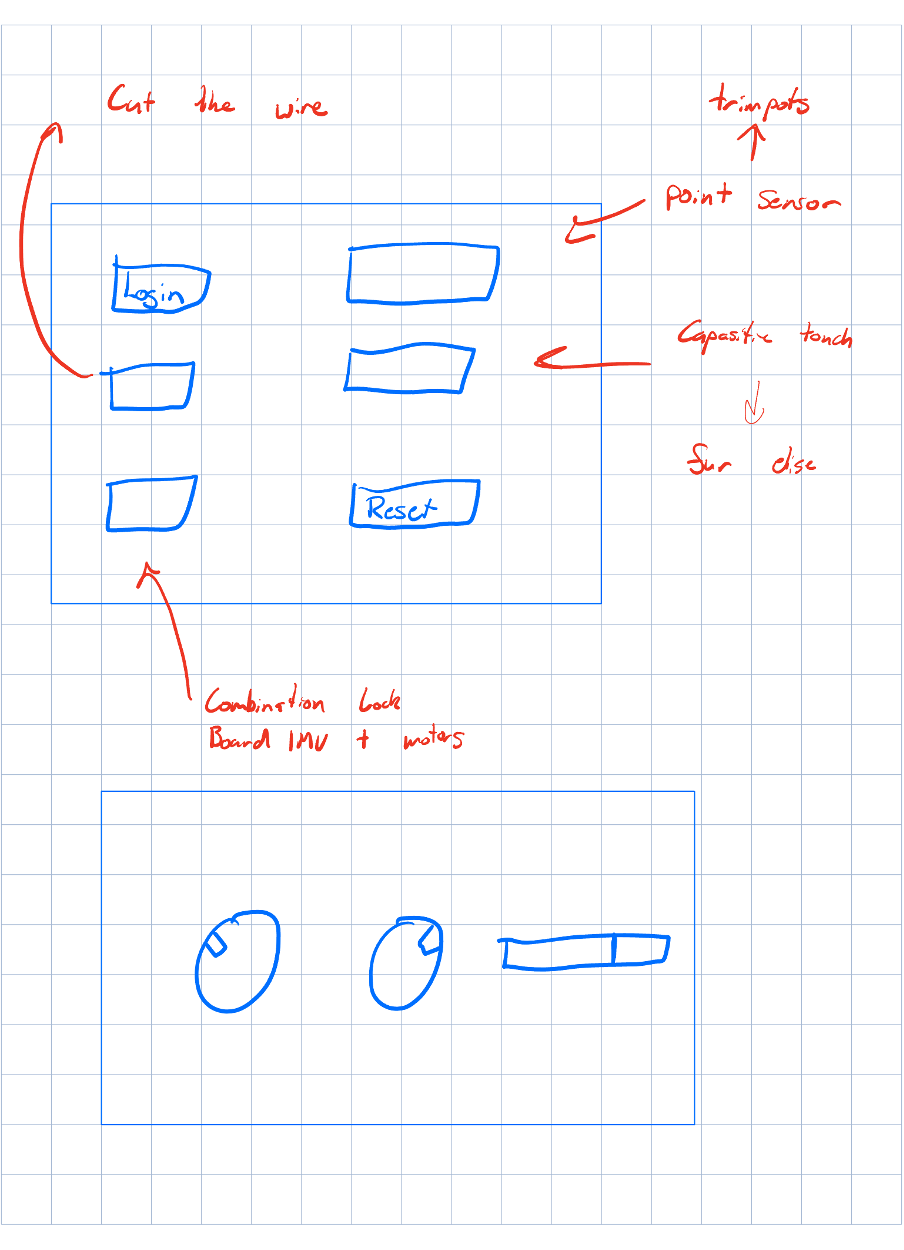 Cut the wire
trimpots
point sensor
Login
Capasitive touch
fur elise
Reset
Combination Lock
Board IMU + motors